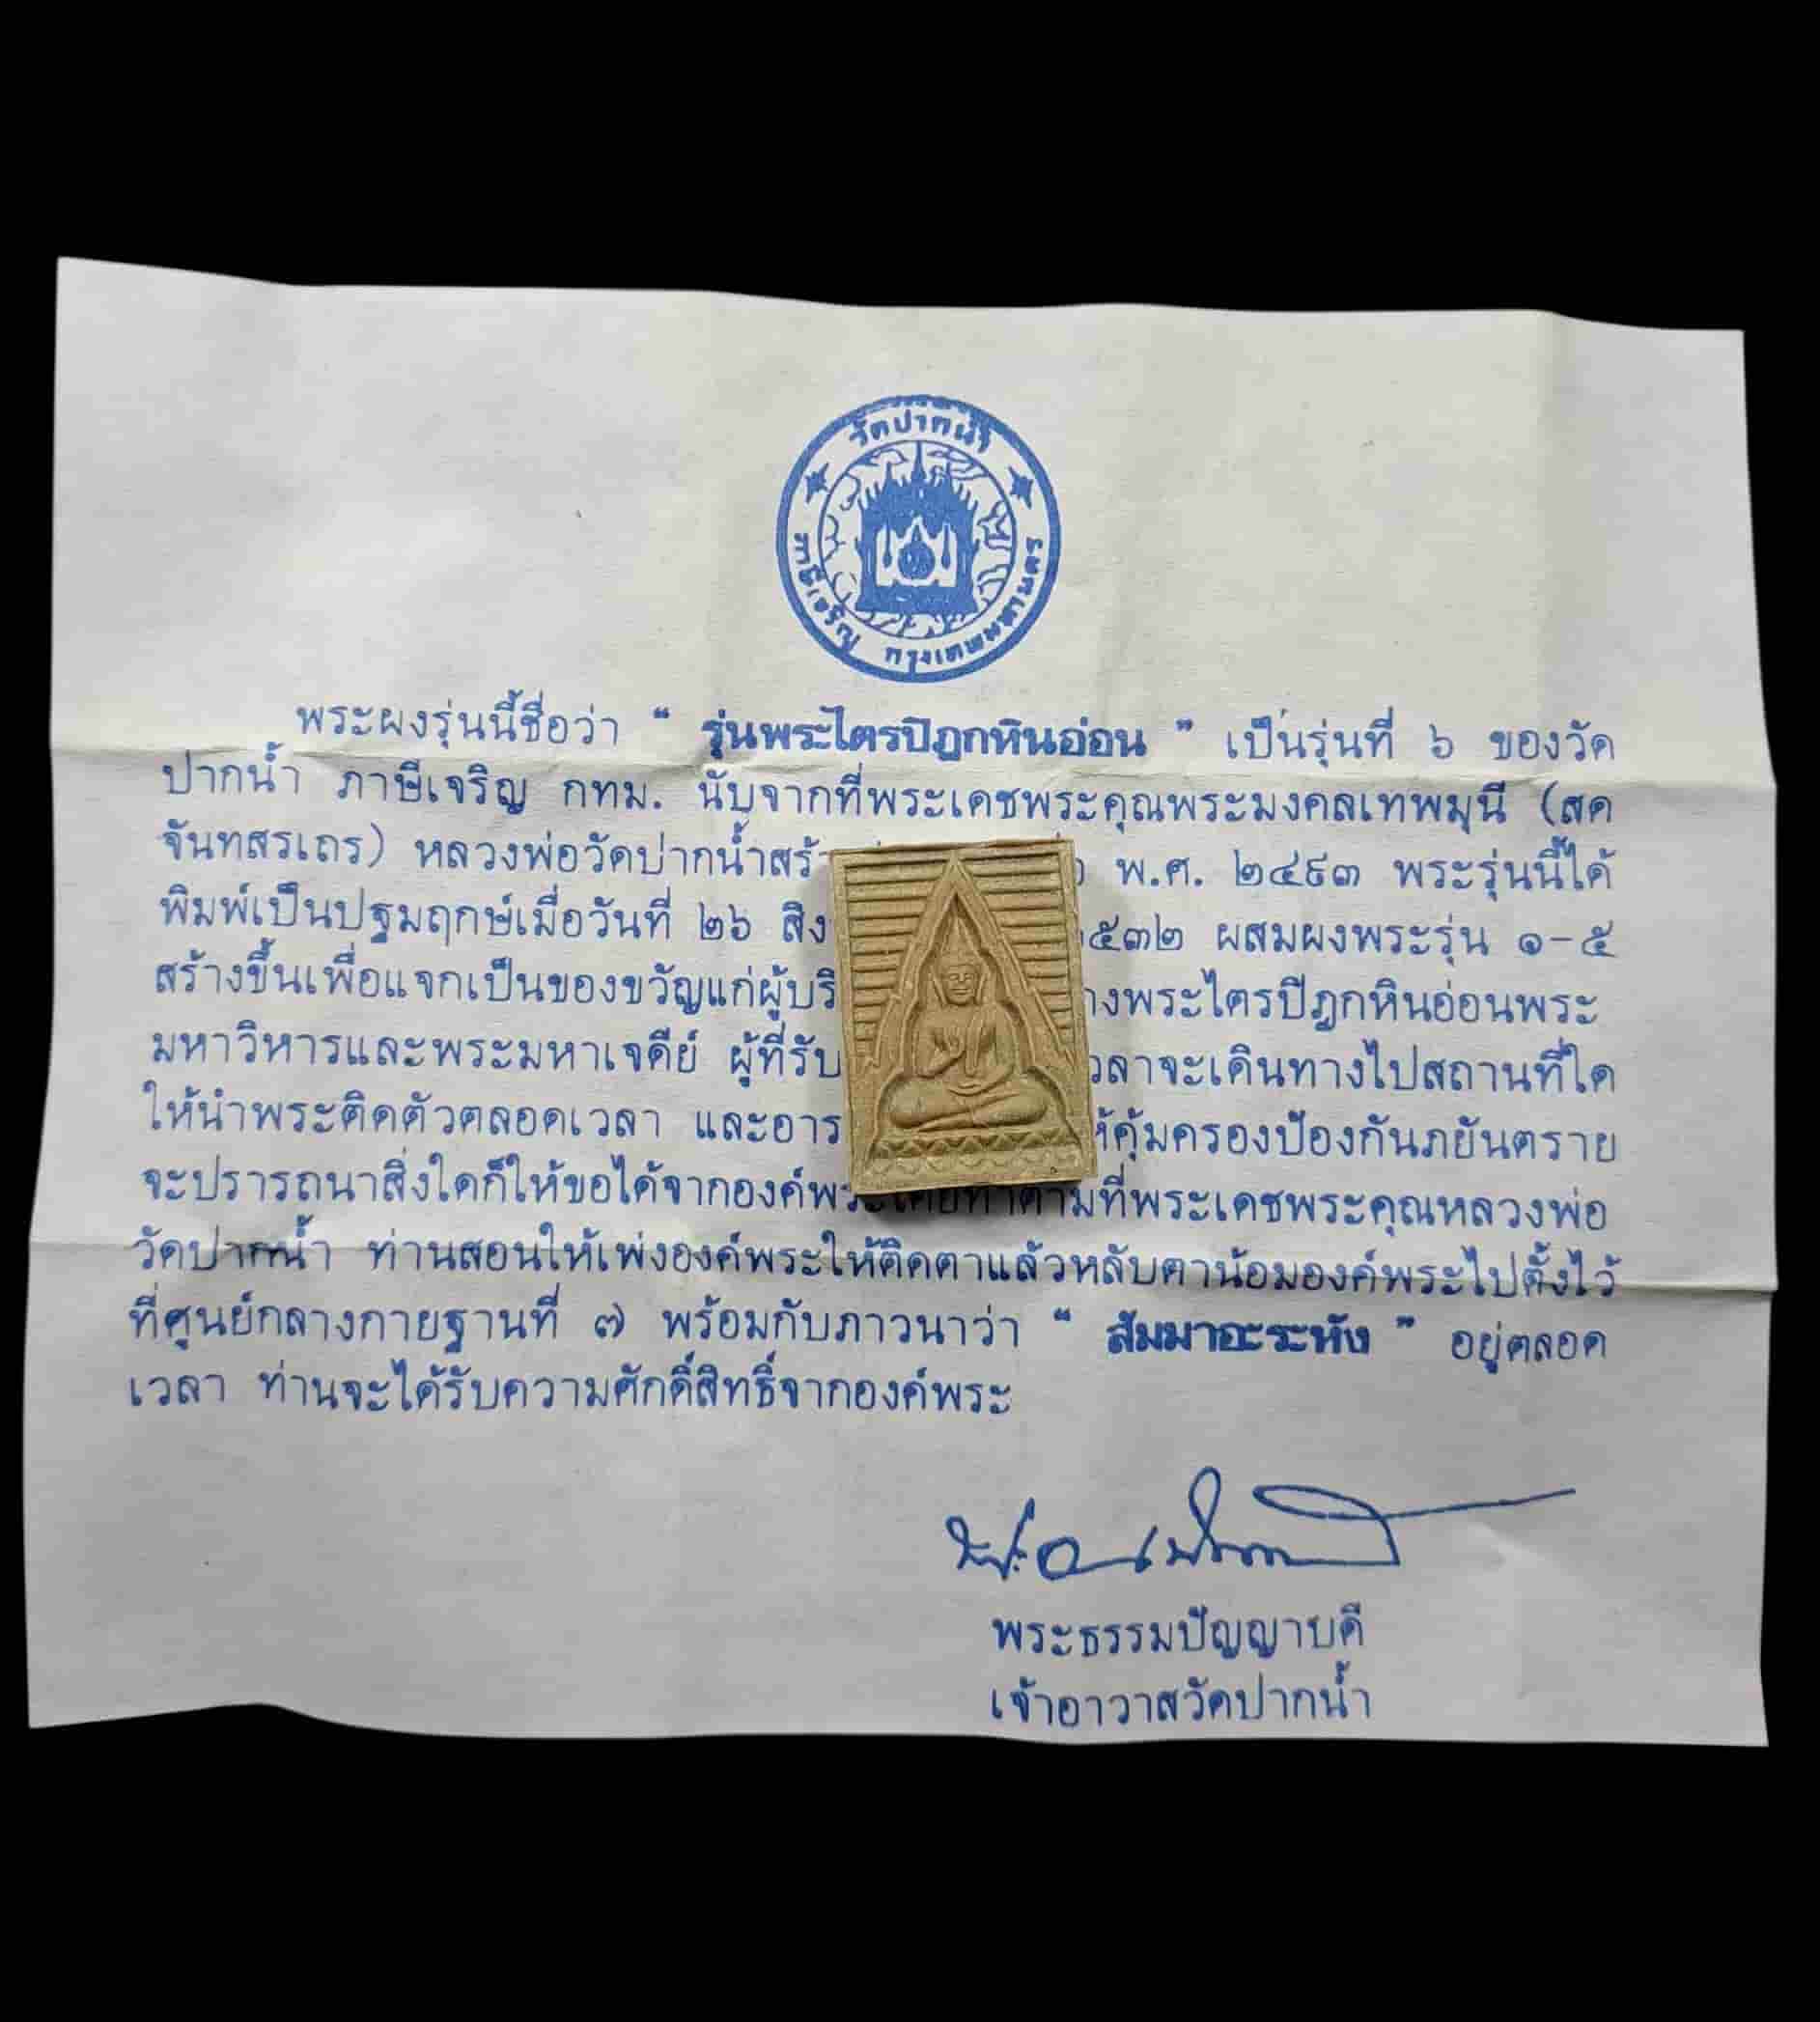 วัดปากน้ำ
ภาษีเจริญ กรุงเทพมหานคร
พระผงรุ่นนี้ชื่อว่า " รุ่นพระไตรปิฎกหินอ่อน " เป็นรุ่นที่ ๖ ของวัด
ปากน้ำ ภาษีเจริญ กทม. นับจากที่พระเดชพระคุณพระมงคลเทพมุนี (สด
จันทสรเถร) หลวงพ่อวัดปากน้ำสร้า พ.ศ. ๒๔๙๓ พระรุ่นนี้ได้
พิมพ์เป็นปฐมฤกษ์เมื่อวันที่ ๒๖ สิง ๕๓๒ ผสมผงพระรุ่น ๑-๕
สร้างขึ้นเพื่อแจกเป็นของขวัญแก่ผู้บริ างพระไตรปิฎกหินอ่อนพระ
มหาวิหารและพระมหาเจดีย์ ผู้ที่รับ วลาจะเดินทางไปสถานที่ใด
ให้นำพระติดตัวตลอดเวลา และอาร ห้คุ้มครองป้องกันภยันตราย
จะปรารถนาสิ่งใดก็ให้ขอได้จากองค์พระ ตามที่พระเดชพระคุณหลวงพ่อ
วัดปากน้ำ ท่านสอนให้เพ่งองค์พระให้ติดตาแล้วหลับตาน้อมองค์พระไปตั้งไว้
ที่ศูนย์กลางกายฐานที่ ๗ พร้อมกับภาวนาว่า " สัมมาอะระหัง " อยู่ตลอด
เวลา ท่านจะได้รับความศักดิ์สิทธิ์จากองค์พระ
พระธรรมปัญญาบดี
เจ้าอาวาสวัดปากน้ำ